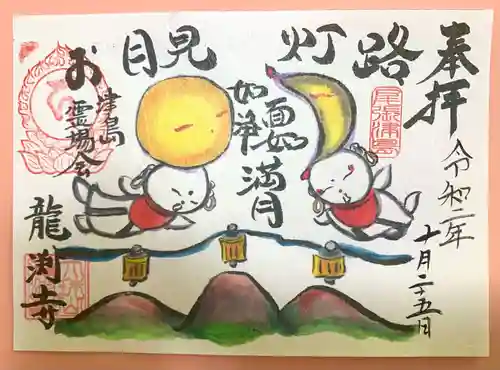 奉拝
令和二年
十月二十五日
お月見灯路
尾張津島
面
如浄
満月
津島
霊場会
龍渕寺